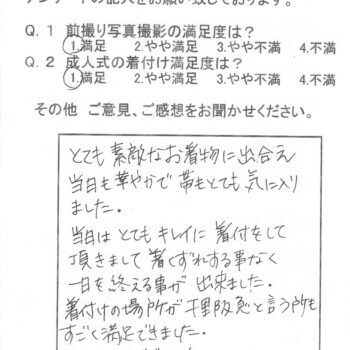 アンケートの記入をお願い致しております。
Q.1 前撮り写真撮影の満足度は？
1.満足 2.やや満足 3.やや不満 4.不満
Q.2 成人式の着付け満足度は？
1.満足 2.やや満足 3.やや不満 4.不満
その他 ご意見、ご感想をお聞かせください。
とても素敵なお着物に出合え
当日も華やかで帯もとても気に入り
ました。
当日はとてもキレイに着付をして
頂きまして着くずれする事なく
一日を終える事が出来ました。
着付けの場所が千里阪急と言う所も
すごく満足できました。